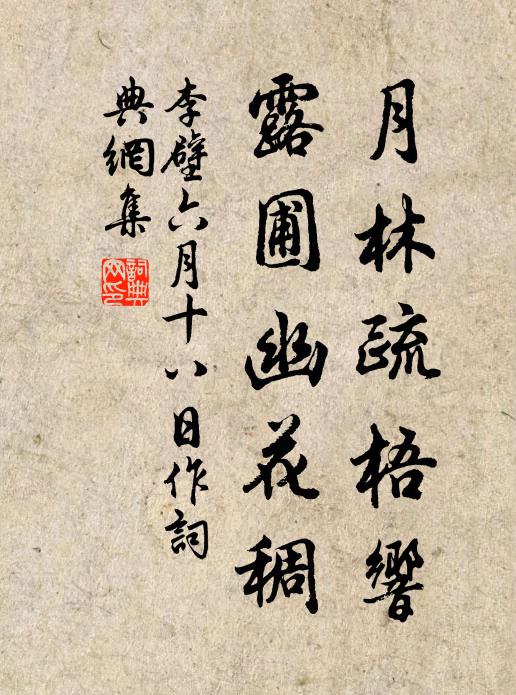 月林疏梧響
露圃幽花稠
李壁六月十八日作詞
典網集
詞典
网印